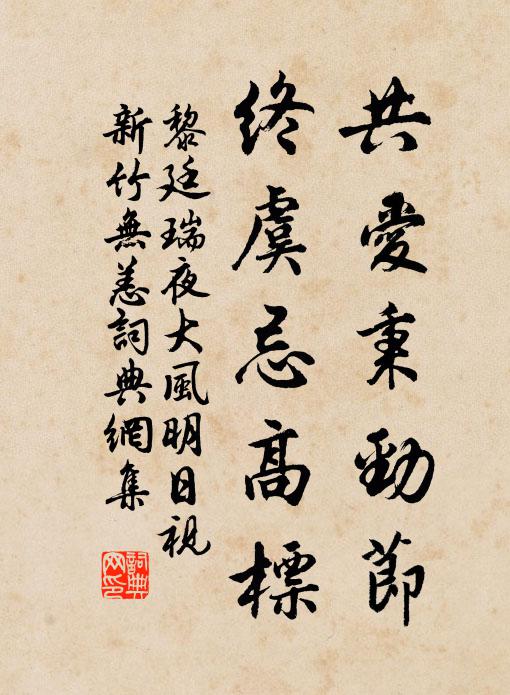 共愛秉勁節
終虞忌高標
黎廷瑞夜大風明日視
新竹無恙詞典網集
詞典网印